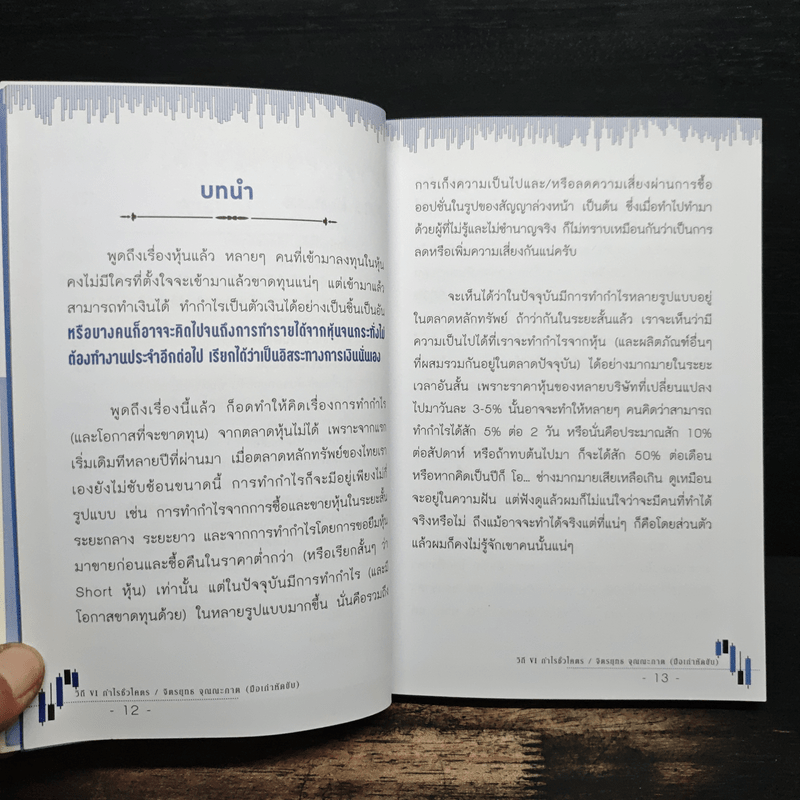 บทนำ
พูดถึงเรื่องหุ้นแล้ว หลายๆ คนที่เข้ามาลงทุนในหุ้น
คงไม่มีใครที่ตั้งใจจะเข้ามาแล้วขาดทุนแน่ๆ แต่เข้ามาแล้ว
สามารถทำเงินได้ ทำกำไรเป็นตัวเงินได้อย่างเป็นชิ้นเป็นอัน
หรือบางคนก็อาจจะคิดไปจนถึงการทำรายได้จากหุ้นจนกระทั่งไม่
ต้องทำงานประจำอีกต่อไป เรียกได้ว่าเป็นอิสระทางการเงินนั่นเอง
พูดถึงเรื่องนี้แล้ว ก็อดทำให้คิดเรื่องการทำกำไร
(และโอกาสที่จะขาดทุน) จากตลาดหุ้นไม่ได้ เพราะจากแรก
เริ่มเดิมทีหลายปีที่ผ่านมา เมื่อตลาดหลักทรัพย์ของไทยเรา
เองยังไม่ซับซ้อนขนาดนี้ การทำกำไรก็จะมีอยู่เพียงไม่กี่
รูปแบบ เช่น การทำกำไรจากการซื้อและขายหุ้นในระยะสั้น
ระยะกลาง ระยะยาว และจากการทำกำไรโดยการขอยืมหุ้น
มาขายก่อนและซื้อคืนในราคาต่ำกว่า (หรือเรียกสั้นๆ ว่า
Short หุ้น) เท่านั้น แต่ในปัจจุบันมีการทำกำไร (และมี
โอกาสขาดทุนด้วย) ในหลายรูปแบบมากขึ้น นั่นคือรวมถึง
วิถี VI กำไรชั่วโคตร / จิตรยุทธ จุณณะภาต (มือเก่าหัดขับ)
- 12 -
การเก็งความเป็นไปและ/หรือลดความเสี่ยงผ่านการซื้อ
ออปชั่นในรูปของสัญญาล่วงหน้า เป็นต้น ซึ่งเมื่อทำไปทำมา
ด้วยผู้ที่ไม่รู้และไม่ชำนาญจริง ก็ไม่ทราบเหมือนกันว่าเป็นการ
ลดหรือเพิ่มความเสี่ยงกันแน่ครับ
จะเห็นได้ว่าในปัจจุบันมีการทำกำไรหลายรูปแบบอยู่
ในตลาดหลักทรัพย์ ถ้าว่ากันในระยะสั้นแล้ว เราจะเห็นว่ามี
ความเป็นไปได้ที่เราจะทำกำไรจากหุ้น (และผลิตภัณฑ์อื่นๆ
ที่ผสมรวมกันอยู่ในตลาดปัจจุบัน) ได้อย่างมากมายในระยะ
เวลาอันสั้น เพราะราคาหุ้นของหลายบริษัทที่เปลี่ยนแปลง
ไปมาวันละ 3-5% นั้นอาจจะทำให้หลายๆ คนคิดว่าสามารถ
ทำกำไรได้สัก 5% ต่อ 2 วัน หรือนั่นคือประมาณสัก 10%
ต่อสัปดาห์ หรือถ้าทบต้นไปมา ก็จะได้สัก 50% ต่อเดือน
หรือหากคิดเป็นปีก็ โอ... ช่างมากมายเสียเหลือเกิน ดูเหมือน
จะอยู่ในความฝัน แต่ฟังดูแล้วผมก็ไม่แน่ใจว่าจะมีคนที่ทำได้
จริงหรือไม่ ถึงแม้อาจจะทำได้จริงแต่ที่แน่ๆ ก็คือโดยส่วนตัว
แล้วผมก็คงไม่รู้จักเขาคนนั้นแน่ๆ
วิถี VI กำไรชั่วโคตร / จิตรยุทธ จุณณะภาต (มือเก่าหัดขับ)
- 13 -